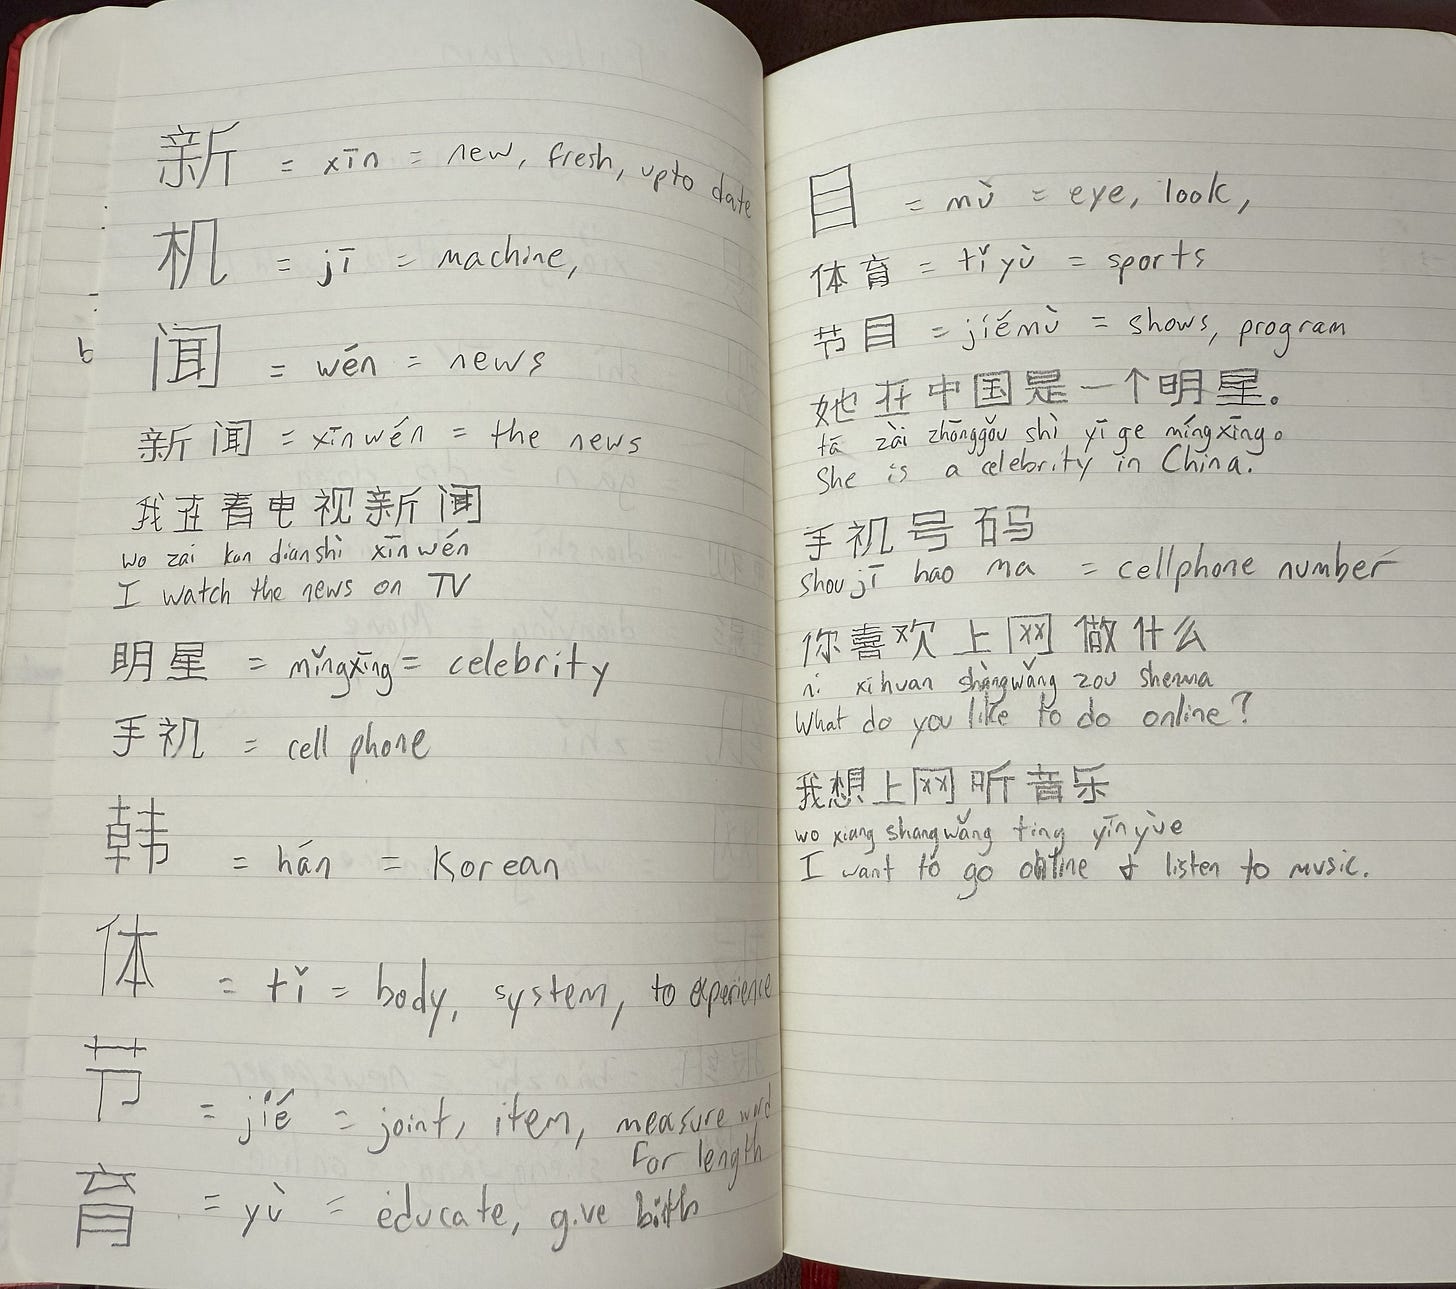 新 = xīn = new, fresh, upto date
机 = jī = machine,
闻 = wén = news
新闻 = xīnwén = the news
我在看电视新闻
wo zai kan dianshì xīnwén
I watch the news on TV
明星 = mǐngxīng = celebrity
手机 = cell phone
韩 = hán = Korean
体 = tǐ = body, system, to experience
节 = jié = joint, item, measure word
for length
育 = yù = educate, give birth
目 = mù = eye, look,
体育 = tǐyù = sports
节目 = jiémù = shows, program
她在中国是一个明星。
tā zài zhōnggǒu shì yī ge míngxīng。
She is a celebrity in China.
手机号码
shoujī hao ma = cellphone number
你喜欢上网做什么
ni xihuan shàngwǎng zou shenma
What do you like to do online?
我想上网听音乐
wo xiang shangwǎng ting yīnyùe
I want to go online & listen to music.